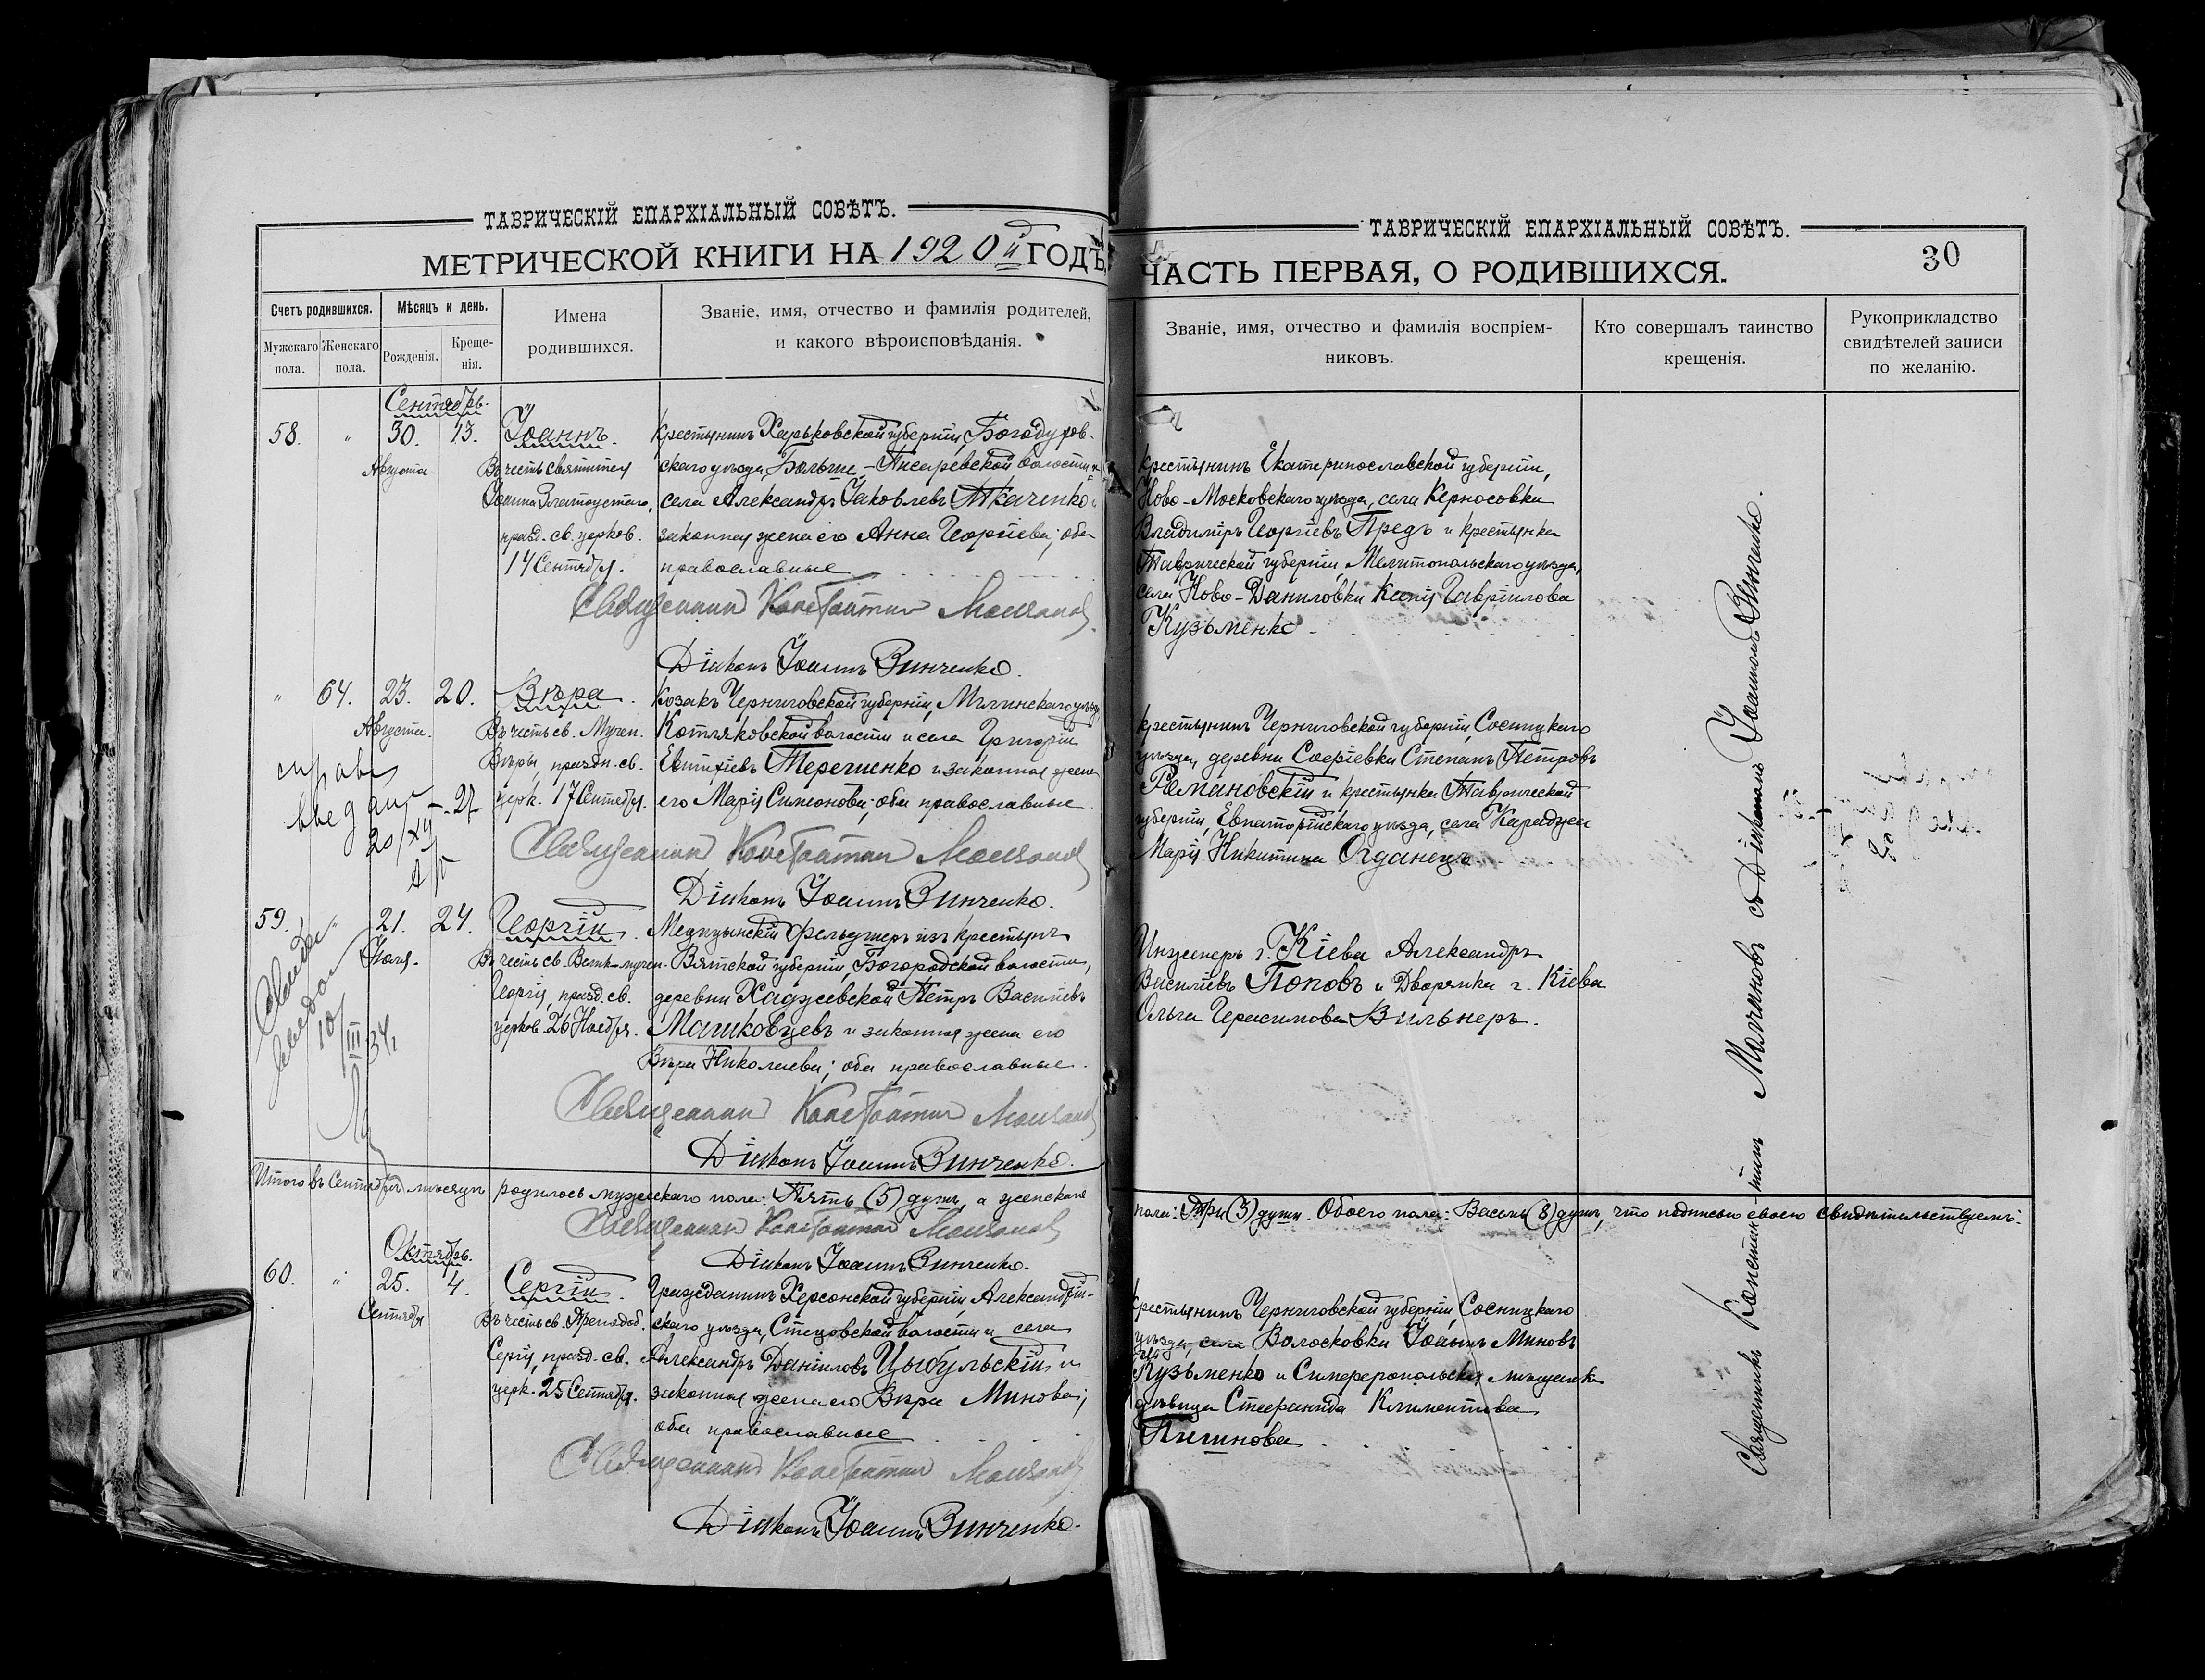 ТАВРИЧЕСКІЙ ЕПАРХІАЛЬНЫЙ СОВѢТЪ.
МЕТРИЧЕСКОЙ КНИГИ НА 1920й ГОДЪ,
Счетъ родившихся.
Мужскаго пола.
Женскаго пола.
Мѣсяцъ и день.
Рожденія.
Крещенія.
Имена
родившихся.
Званіе, имя, отчество и фамилія родителей,
и какого вѣроисповѣданія.
Сентябрь.
58. " 30. 13. Іоаннъ.
Августа
Въ честь святителя
Іоанна Златоустаго,
празд. св. церков.
14 Сентября.
Крестьянинъ Харьковской губерніи, Богодухов-
скаго уѣзда, Больше-Писаревской волости и
села Александръ Іаковлевъ Ткаченко и
законная жена его Анна Георгіева; оба
православные
Священникъ Константинъ Молчановъ
Діаконъ Іоаннъ Винченко.
" 64. 23. 20. Вѣра.
Августа.
Въ честь св. Мучен.
Вѣры, праздн. св.
церк. 17 Сентября.
Козакъ Черниговской губерніи, Мглинскаго уѣзда
Котляковской волости и села Григорій
Евтихіевъ Терещенко и законная жена
его Марія Симонова; оба православные.
справка
выдана
20/XII-27
Священникъ Константинъ Молчановъ
Діаконъ Іоаннъ Винченко.
59. " 21. 24. Георгій.
Іюля.
Въ честь св. Велик-мучен.
Георгія, празд. св.
церков. 26 Ноября.
Медицынскій фельдшеръ изъ крестьянъ
Вятской губерніи, Богородской волости,
деревни Хаджевской Петръ Васильевъ
Машковцевъ и законная жена его
Вѣра Николаева; оба православные.
10/III 34
Священникъ Константинъ Молчановъ
Діаконъ Іоаннъ Винченко.
Итого въ Сентябрѣ мѣсяцѣ родилось мужескаго пола: Пять (5) душъ, а женскаго
Священникъ Константинъ Молчановъ
Діаконъ Іоаннъ Винченко.
Октябрь.
60. " 25. 4. Сергій.
Сентября
Въ честь св. Преподоб.
Сергія, празд. св.
церк. 25 Сентября.
Гражданинъ Херсонской губерніи, Александрій-
скаго уѣзда, Стецовской волости и села
Александръ Даніиловъ Цыбульскій и
законная жена его Вѣра Минова;
оба православные
Священникъ Константинъ Молчановъ
Діаконъ Іоаннъ Винченко.
ТАВРИЧЕСКІЙ ЕПАРХІАЛЬНЫЙ СОВѢТЪ.
ЧАСТЬ ПЕРВАЯ, О РОДИВШИХСЯ.
30
Званіе, имя, отчество и фамилія воспріем-
никовъ.
Кто совершалъ таинство
крещенія.
Рукоприкладство
свидѣтелей записи
по желанію.
Крестьянинъ Екатеринославской губерніи,
Ново-Московскаго уѣзда, села Керносовки
Владиміръ Георгіевъ Предъ и крестьянка
Таврической губерніи, Мелитопольскаго уѣзда,
села Ново-Даниловки Ксенія Гавріилова
Кузьменко
крестьянинъ Черниговской губерніи, Сосницкаго
уѣзда, деревни Софіевки Стефанъ Петровъ
Романовскій и крестьянка Таврической
губерніи, Евпаторійскаго уѣзда, села Караджа
Марія Никитина Огданецъ
Инженеръ г. Кіева Александръ
Васильевъ Поповъ и Дворянка г. Кіева
Ольга Герасимова Вильнеръ.
пола: Три (3) души. Обоего пола: Восемь (8) душъ, что подписью своею свидѣтельствуемъ:
Крестьянинъ Черниговской губерніи, Сосницкаго
уѣзда, села Волосковки Іоаннъ Миновъ
Кузьменко и Симферопольская мѣщанка
дѣвица Стефанида Климентова
Священникъ Константинъ Молчановъ съ Діакономъ Іоанномъ Винченко.